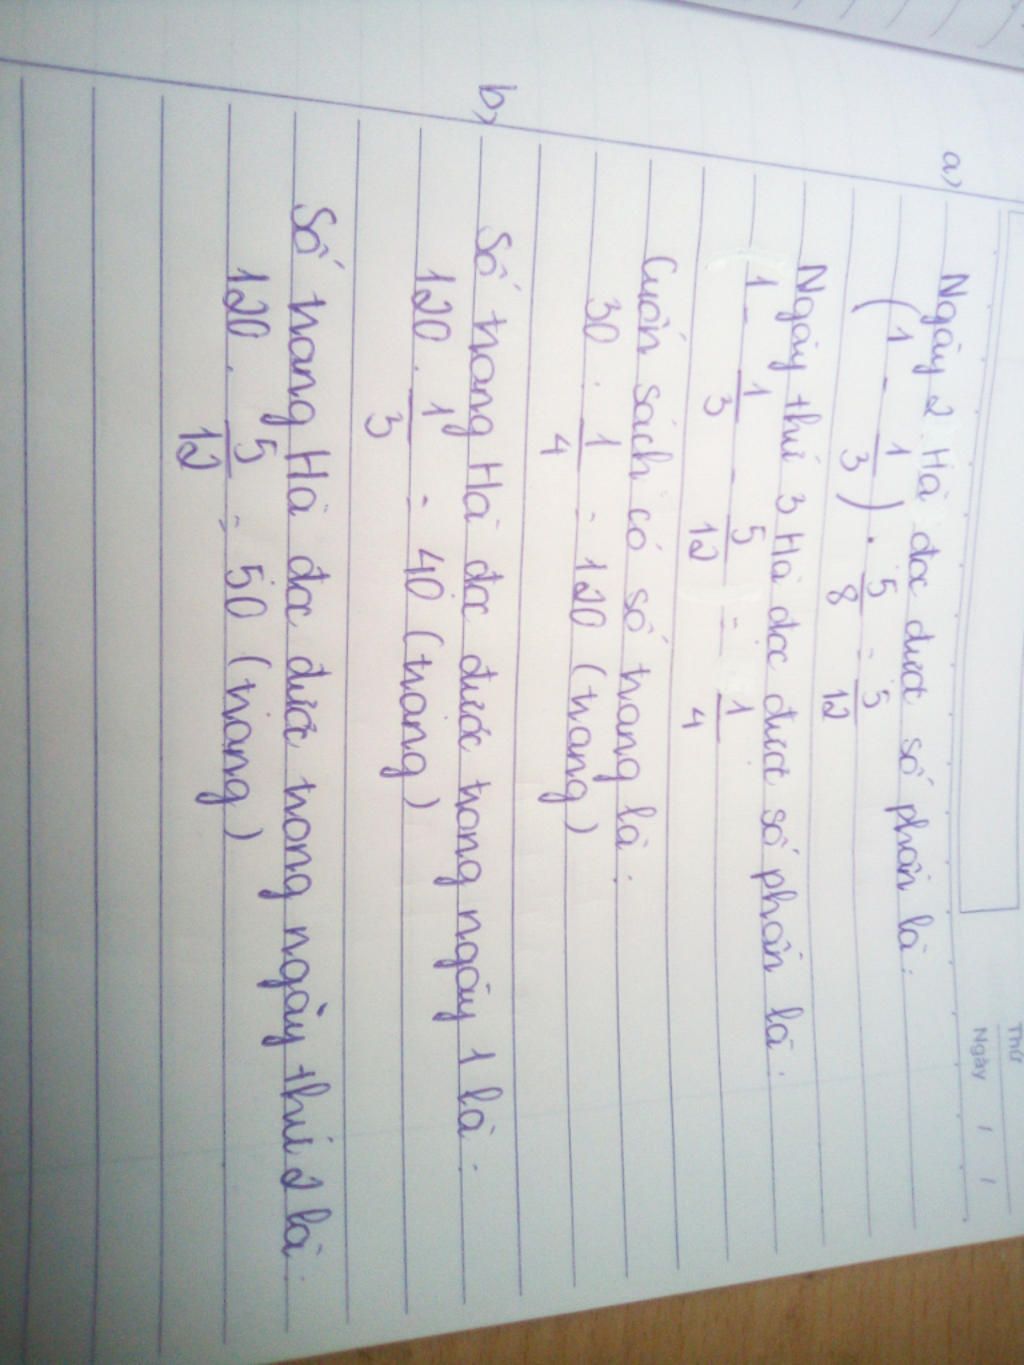 Thứ
Ngày / /
a) Ngày 2 Hà đọc được số phần là:
(1 - 1/3) . 5/8 = 5/12
Ngày thứ 3 Hà đọc được số phần là:
1 - 1/3 - 5/12 = 1/4
Cuốn sách có số trang là:
30 : 1/4 = 120 (trang)
b) Số trang Hà đọc được trong ngày 1 là:
120 . 1/3 = 40 (trang)
Số trang Hà đọc được trong ngày thứ 2 là:
120 . 5/12 = 50 (trang)